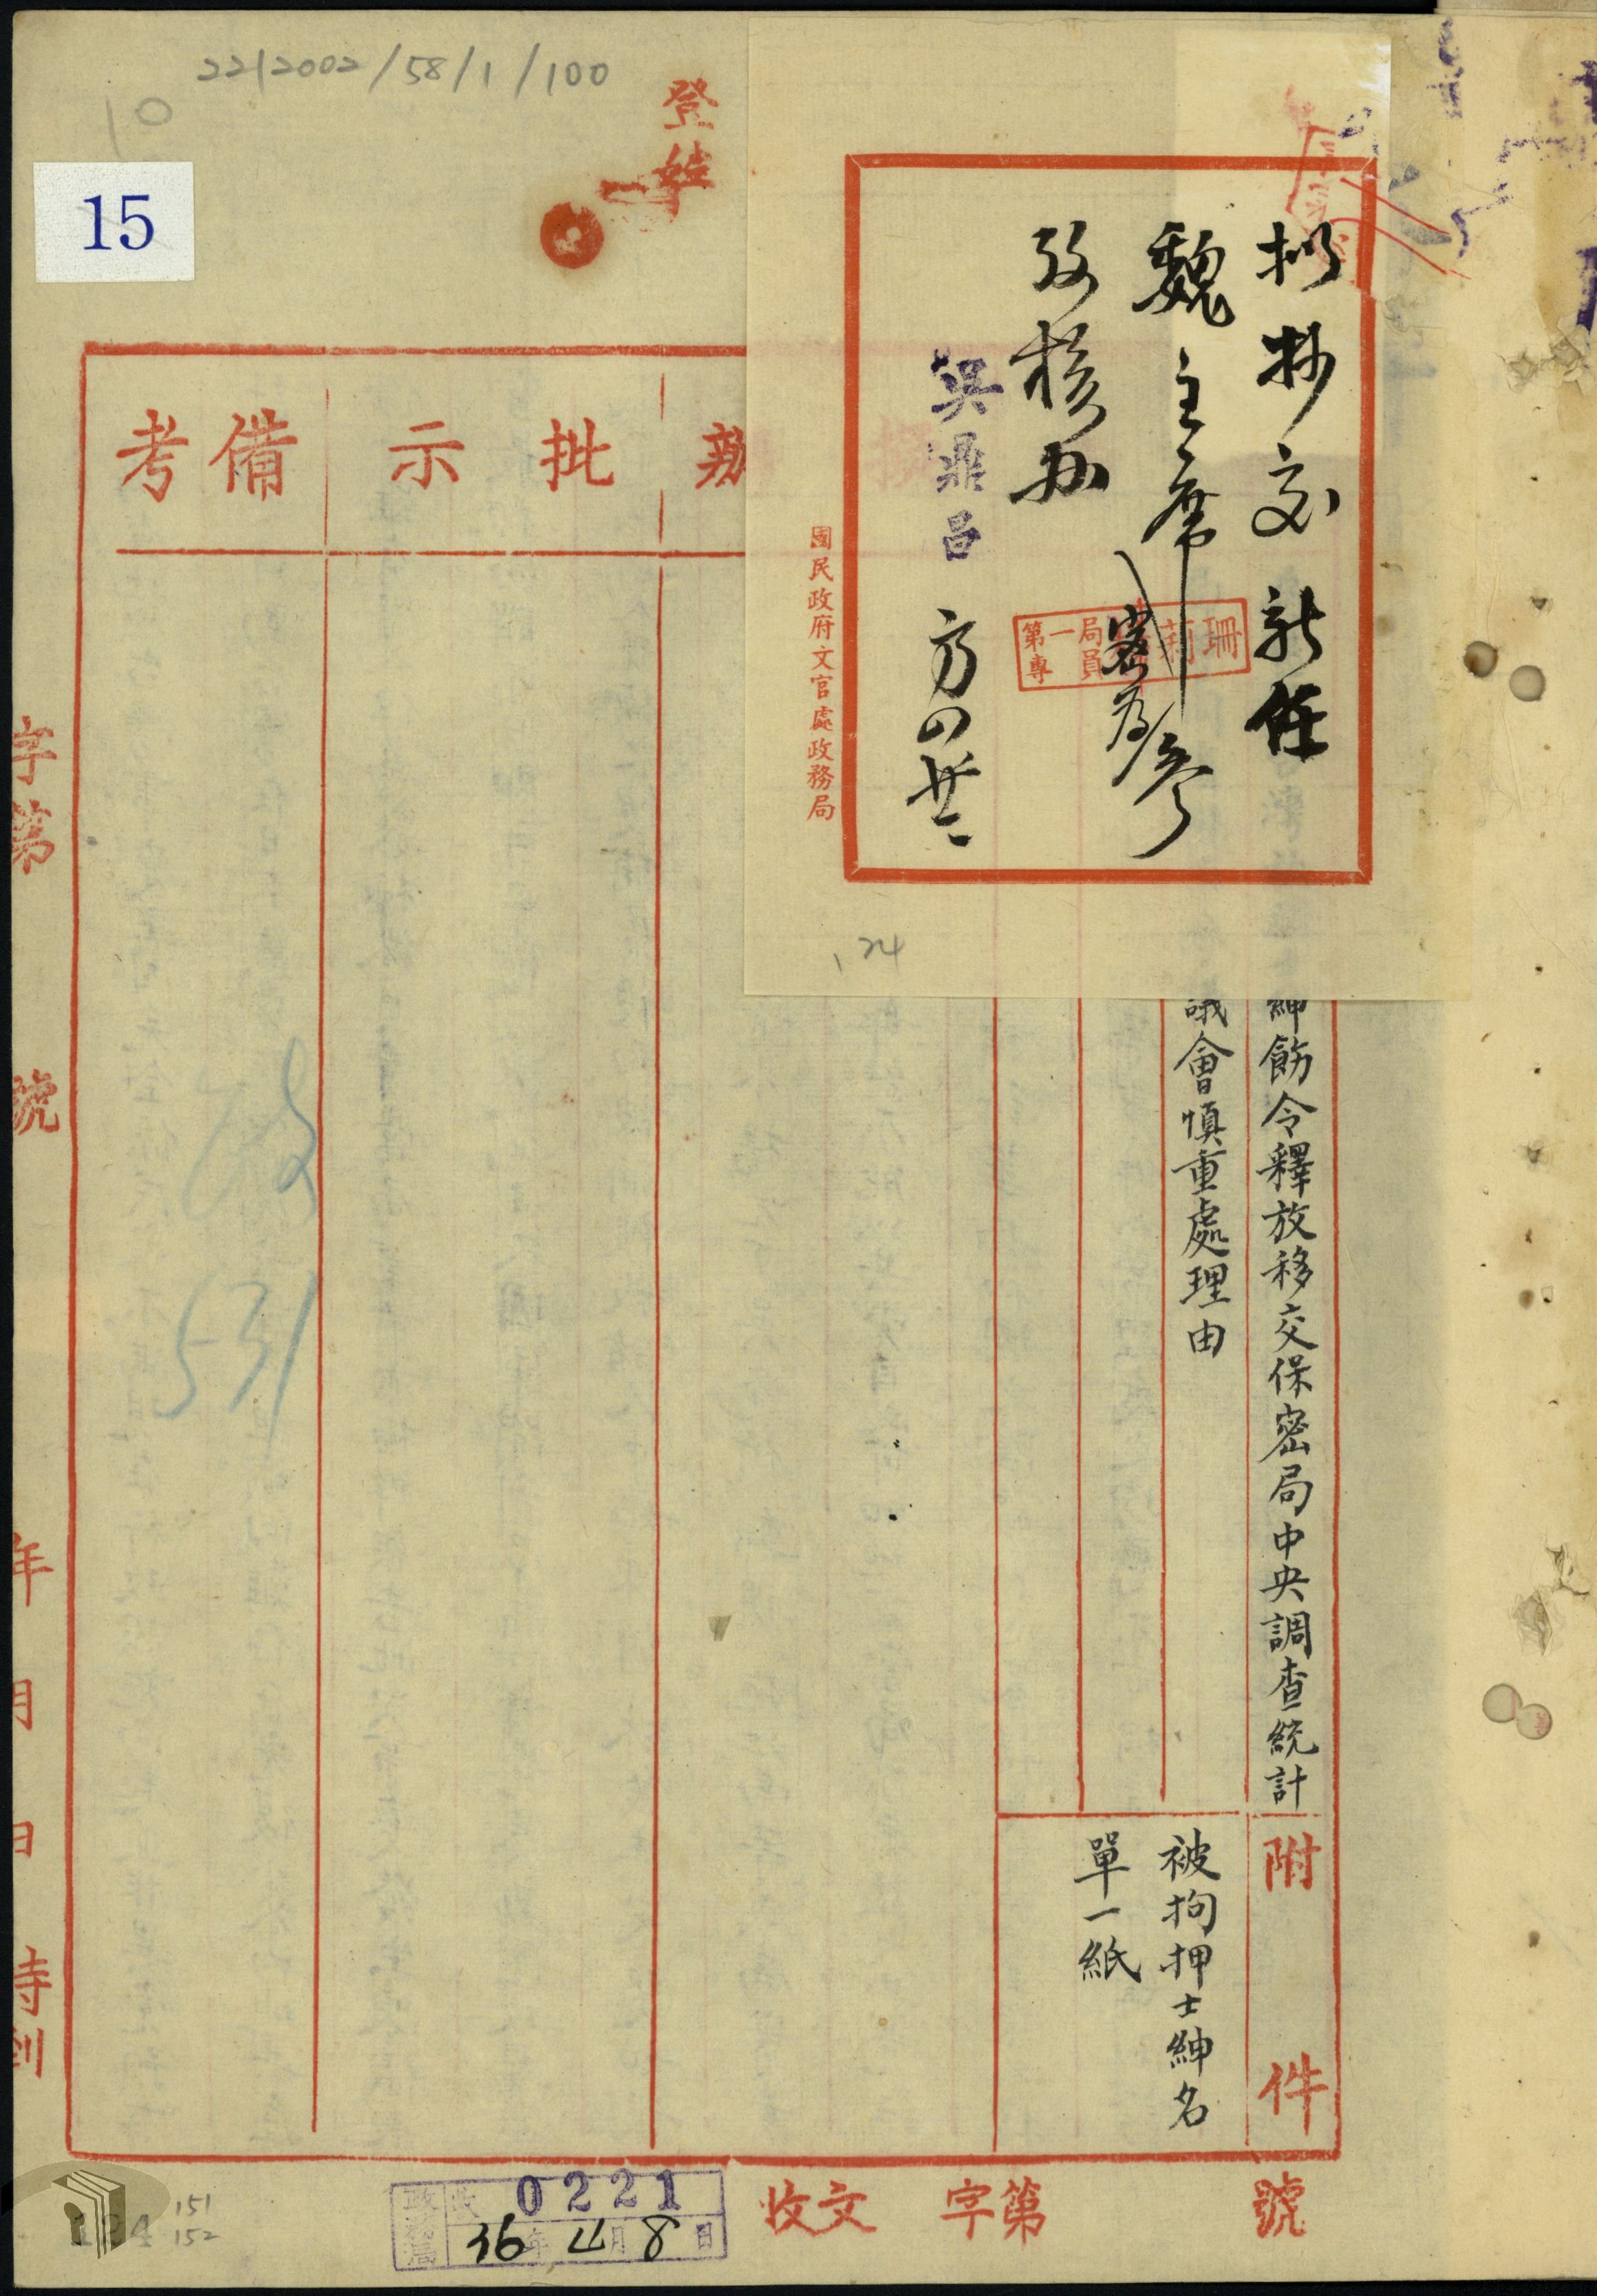 22/2002/58/1/100
10
15
登
擬抄交新任
魏主席密為參
考核办
吳鼎昌 方四廿二
第一局
專員
珊
國民政府文官處政務局
124
辦
批示
備考
紳飭令釋放移交保密局中央調查統計
議會慎重處理由
附件
被拘押士紳名
單一紙
531
字第
號
年
月
日
時到
收文 字第 號
政務局 收 0221
36年4月8日
151
152